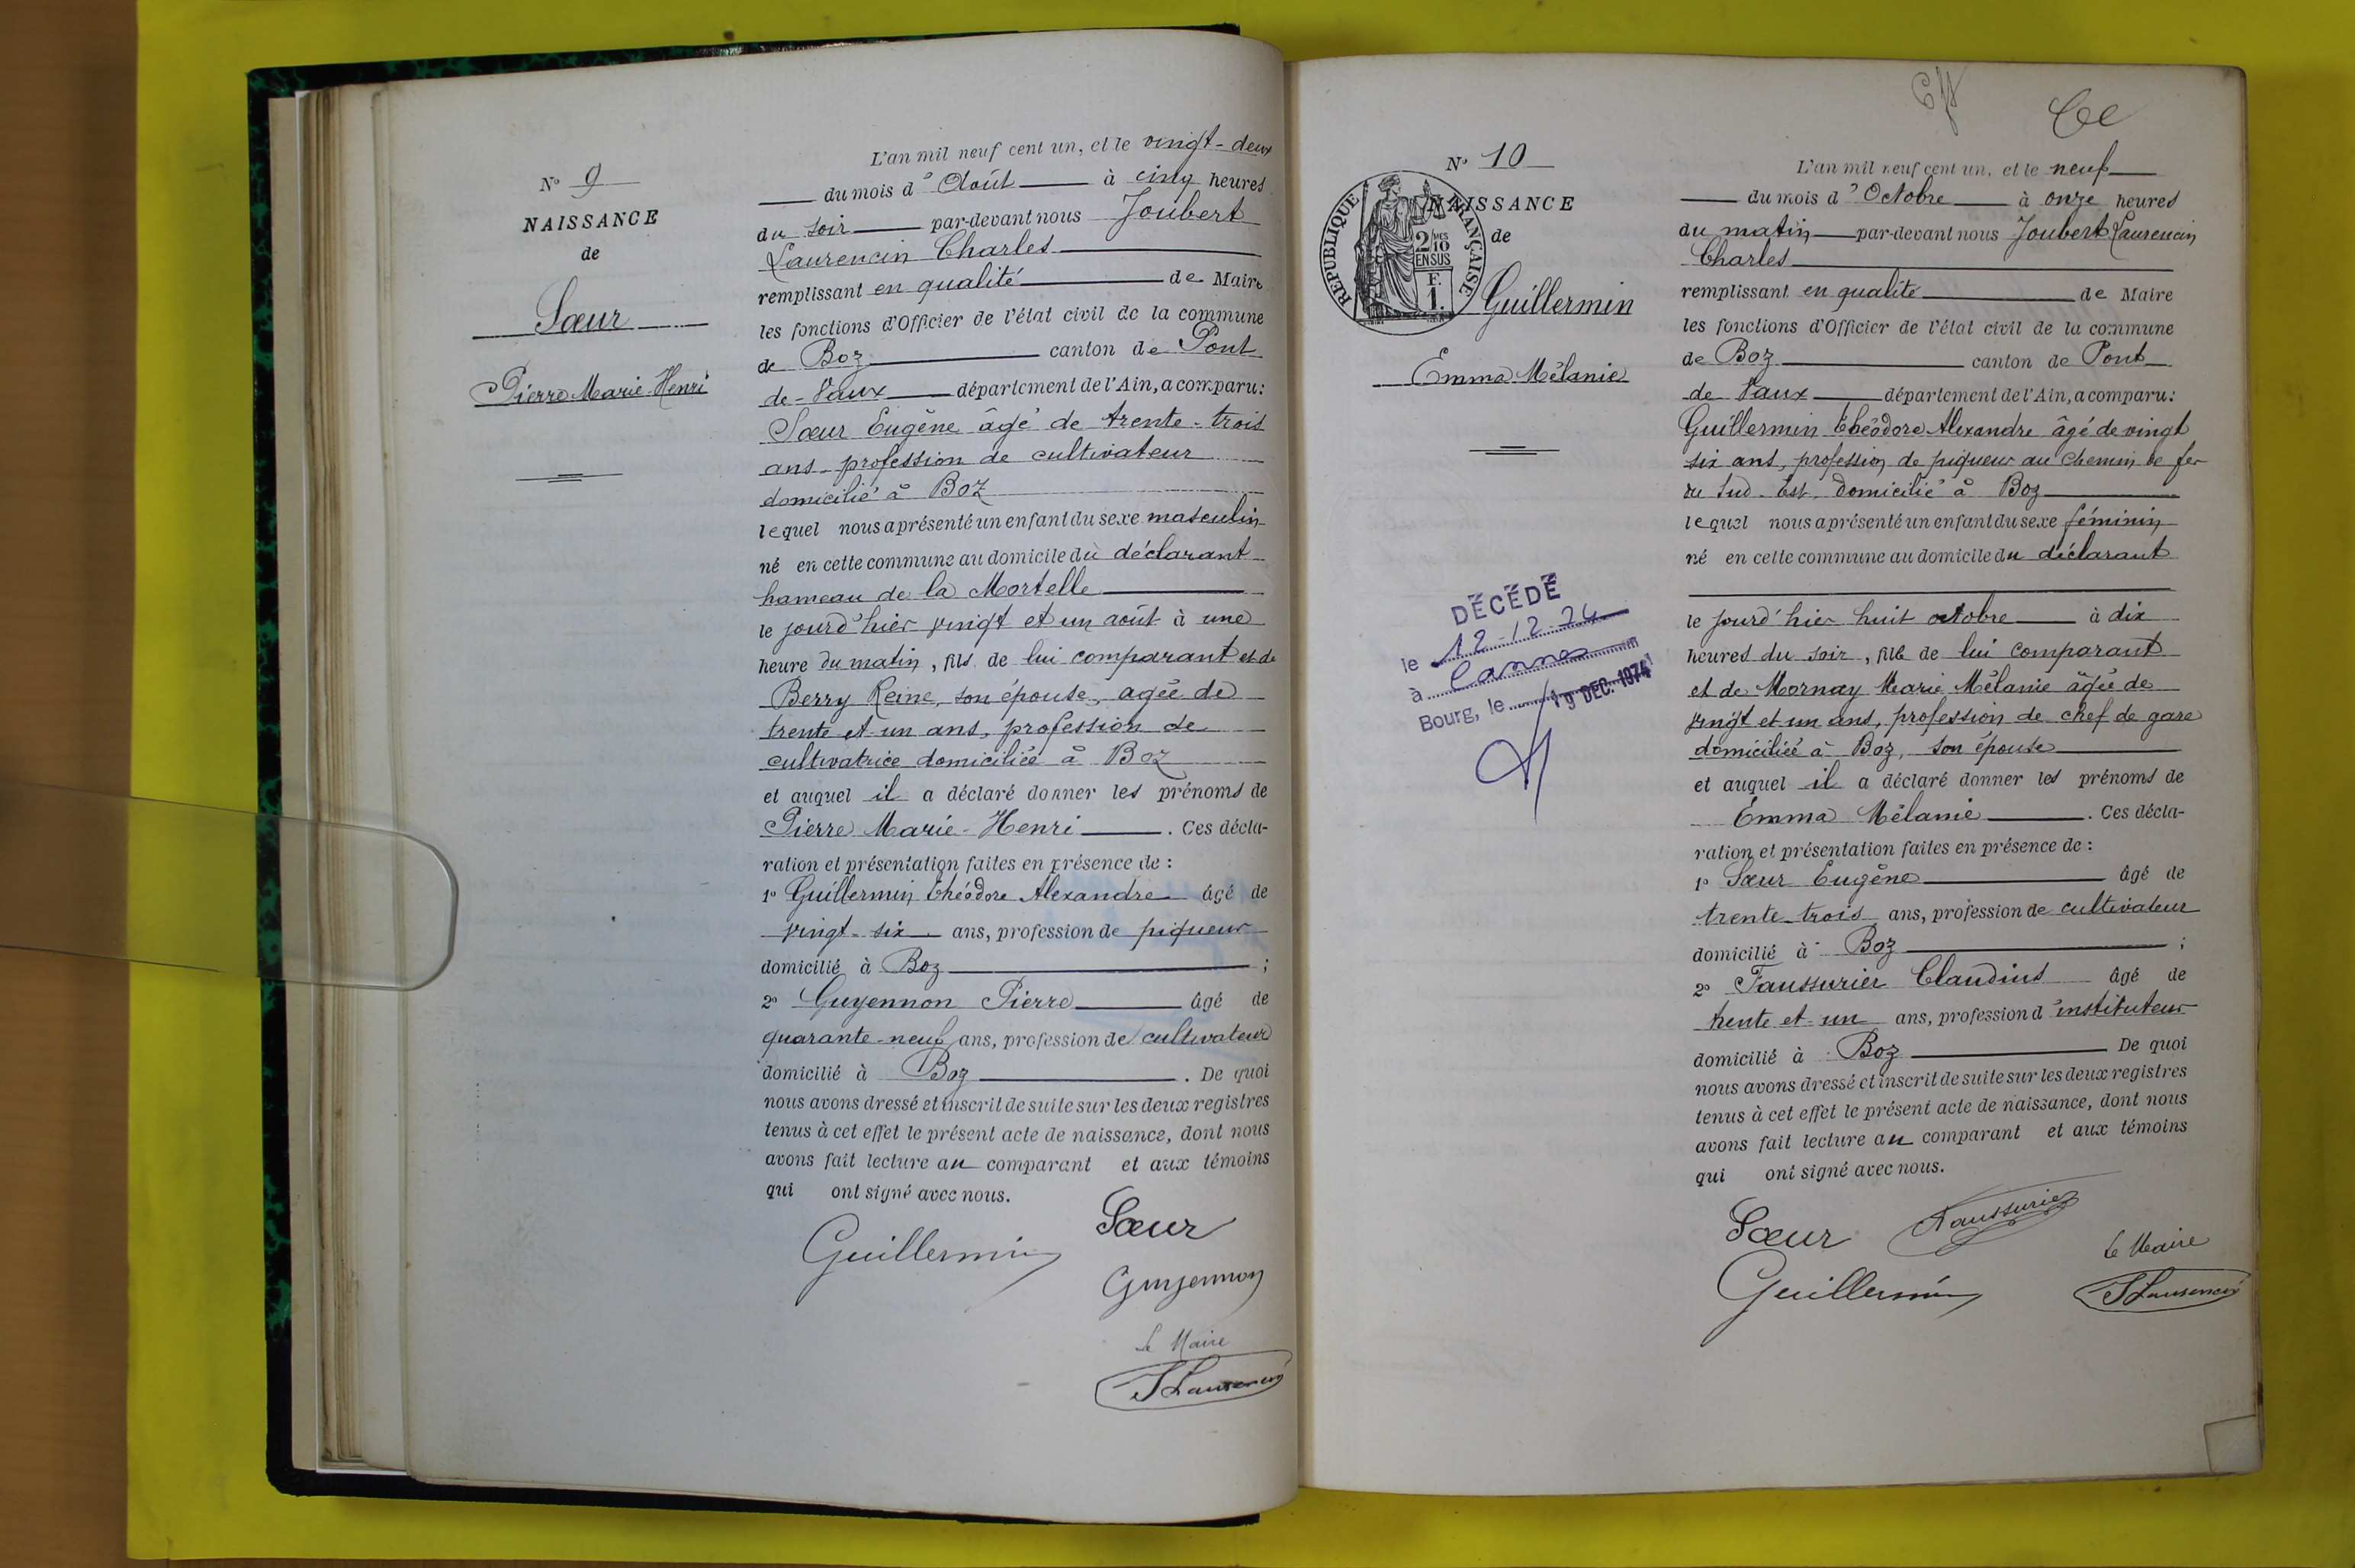 N° 9
NAISSANCE
de
Sœur
Pierre Marie-Henri
L'an mil neuf cent un, et le vingt-deux
du mois d'Août à cinq heures
du soir par-devant nous Joubert
Laurencin Charles
remplissant en qualité de Maire
les fonctions d'Officier de l'état civil de la commune
de Boz canton de Pont
de-Vaux département de l'Ain, a comparu:
Sœur Eugène âgé de trente-trois
ans profession de cultivateur
domicilié à Boz
lequel nous a présenté un enfant du sexe masculin
né en cette commune au domicile du déclarant
hameau de la Mortelle
le jourd'hier vingt et un août à une
heure du matin, fils de lui comparant et de
Berry Reine, son épouse, agée de
trente et un ans, profession de
cultivatrice domiciliée à Boz
et auquel il a déclaré donner les prénoms de
Pierre Marie-Henri. Ces décla-
ration et présentation faites en présence de :
1° Guillermin Théodore Alexandre âgé de
vingt-six ans, profession de piqueur
domicilié à Boz ;
2° Guyennon Pierre âgé de
quarante-neuf ans, profession de cultivateur
domicilié à Boz. De quoi
nous avons dressé et inscrit de suite sur les deux registres
tenus à cet effet le présent acte de naissance, dont nous
avons fait lecture au comparant et aux témoins
qui ont signé avec nous.
Sœur
Guillermin
Guyennon
Le Maire
N° 10
NAISSANCE
de
RÉPUBLIQUE FRANÇAISE
2/10 MES
EN SUS
F.
1.
Guillermin
Emma Mélanie
DÉCÉDÉ
le 12-12-74
à Cannes
Bourg, le 19 DEC. 1974
L'an mil neuf cent un, et le neuf
du mois d'Octobre à onze heures
du matin par-devant nous Joubert Laurencin
Charles
remplissant en qualité de Maire
les fonctions d'Officier de l'état civil de la commune
de Boz canton de Pont
de Vaux département de l'Ain, a comparu:
Guillermin Théodore Alexandre âgé de vingt
six ans, profession de piqueur au Chemin de fer
du Sud-Est, domicilié à Boz
lequel nous a présenté un enfant du sexe féminin
né en cette commune au domicile du déclarant
le jourd'hier huit octobre à dix
heures du soir, fille de lui comparant
et de Mornay Marie Mélanie âgée de
vingt et un ans, profession de chef de gare
domiciliée à Boz, son épouse
et auquel il a déclaré donner les prénoms de
Emma Mélanie. Ces décla-
ration et présentation faites en présence de :
1° Sœur Eugène âgé de
trente-trois ans, profession de cultivateur
domicilié à Boz ;
2° Faussurier Claudius âgé de
trente et un ans, profession d'instituteur
domicilié à Boz De quoi
nous avons dressé et inscrit de suite sur les deux registres
tenus à cet effet le présent acte de naissance, dont nous
avons fait lecture au comparant et aux témoins
qui ont signé avec nous.
Sœur Faussurier
Le Maire
Guillermin